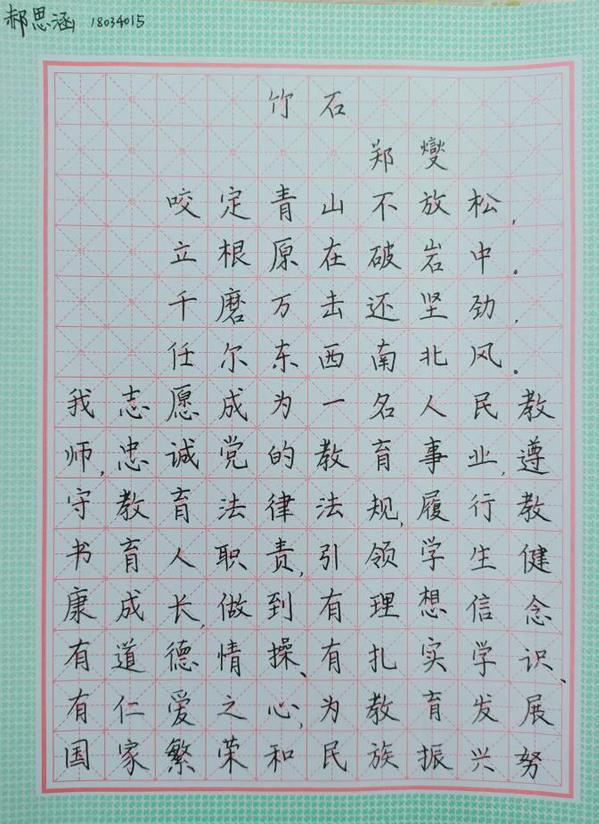 郝思涵 18034015
竹石
郑燮
咬定青山不放松,
立根原在破岩中.
千磨万击还坚劲,
任尔东西南北风.
我志愿成为一名人民教
师,忠诚党的教育事业,遵
守教育法律法规,履行教
书育人职责,引领学生健
康成长,做到有理想信念
有道德情操、有扎实学识、
有仁爱之心,为教育发展
国家繁荣和民族振兴努